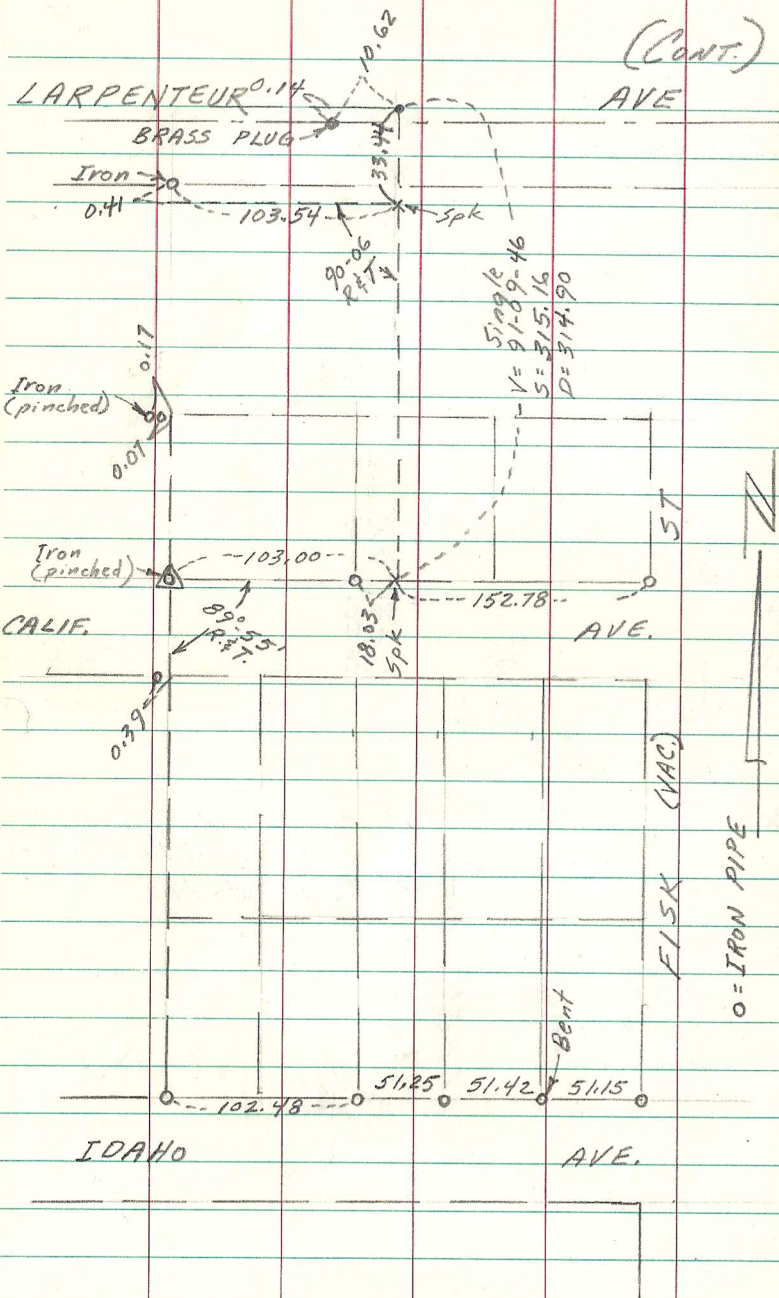 (CONT.)
10.62
LARPENTEUR 0.14 AVE
BRASS PLUG
33.44
Iron
0.41
103.54
Spk
90-06
R&T.
Single
V= 91-09-46
S= 315.16
D= 314.90
0.17
Iron
(pinched)
0.07
N
ST
Iron
(pinched)
103.00
152.78
89°-55'
R.&T.
18.03
Spk
CALIF. AVE.
0.39
FISK (VAC.)
O = IRON PIPE
Bent
102.48
51.25
51.42
51.15
IDAHO AVE.